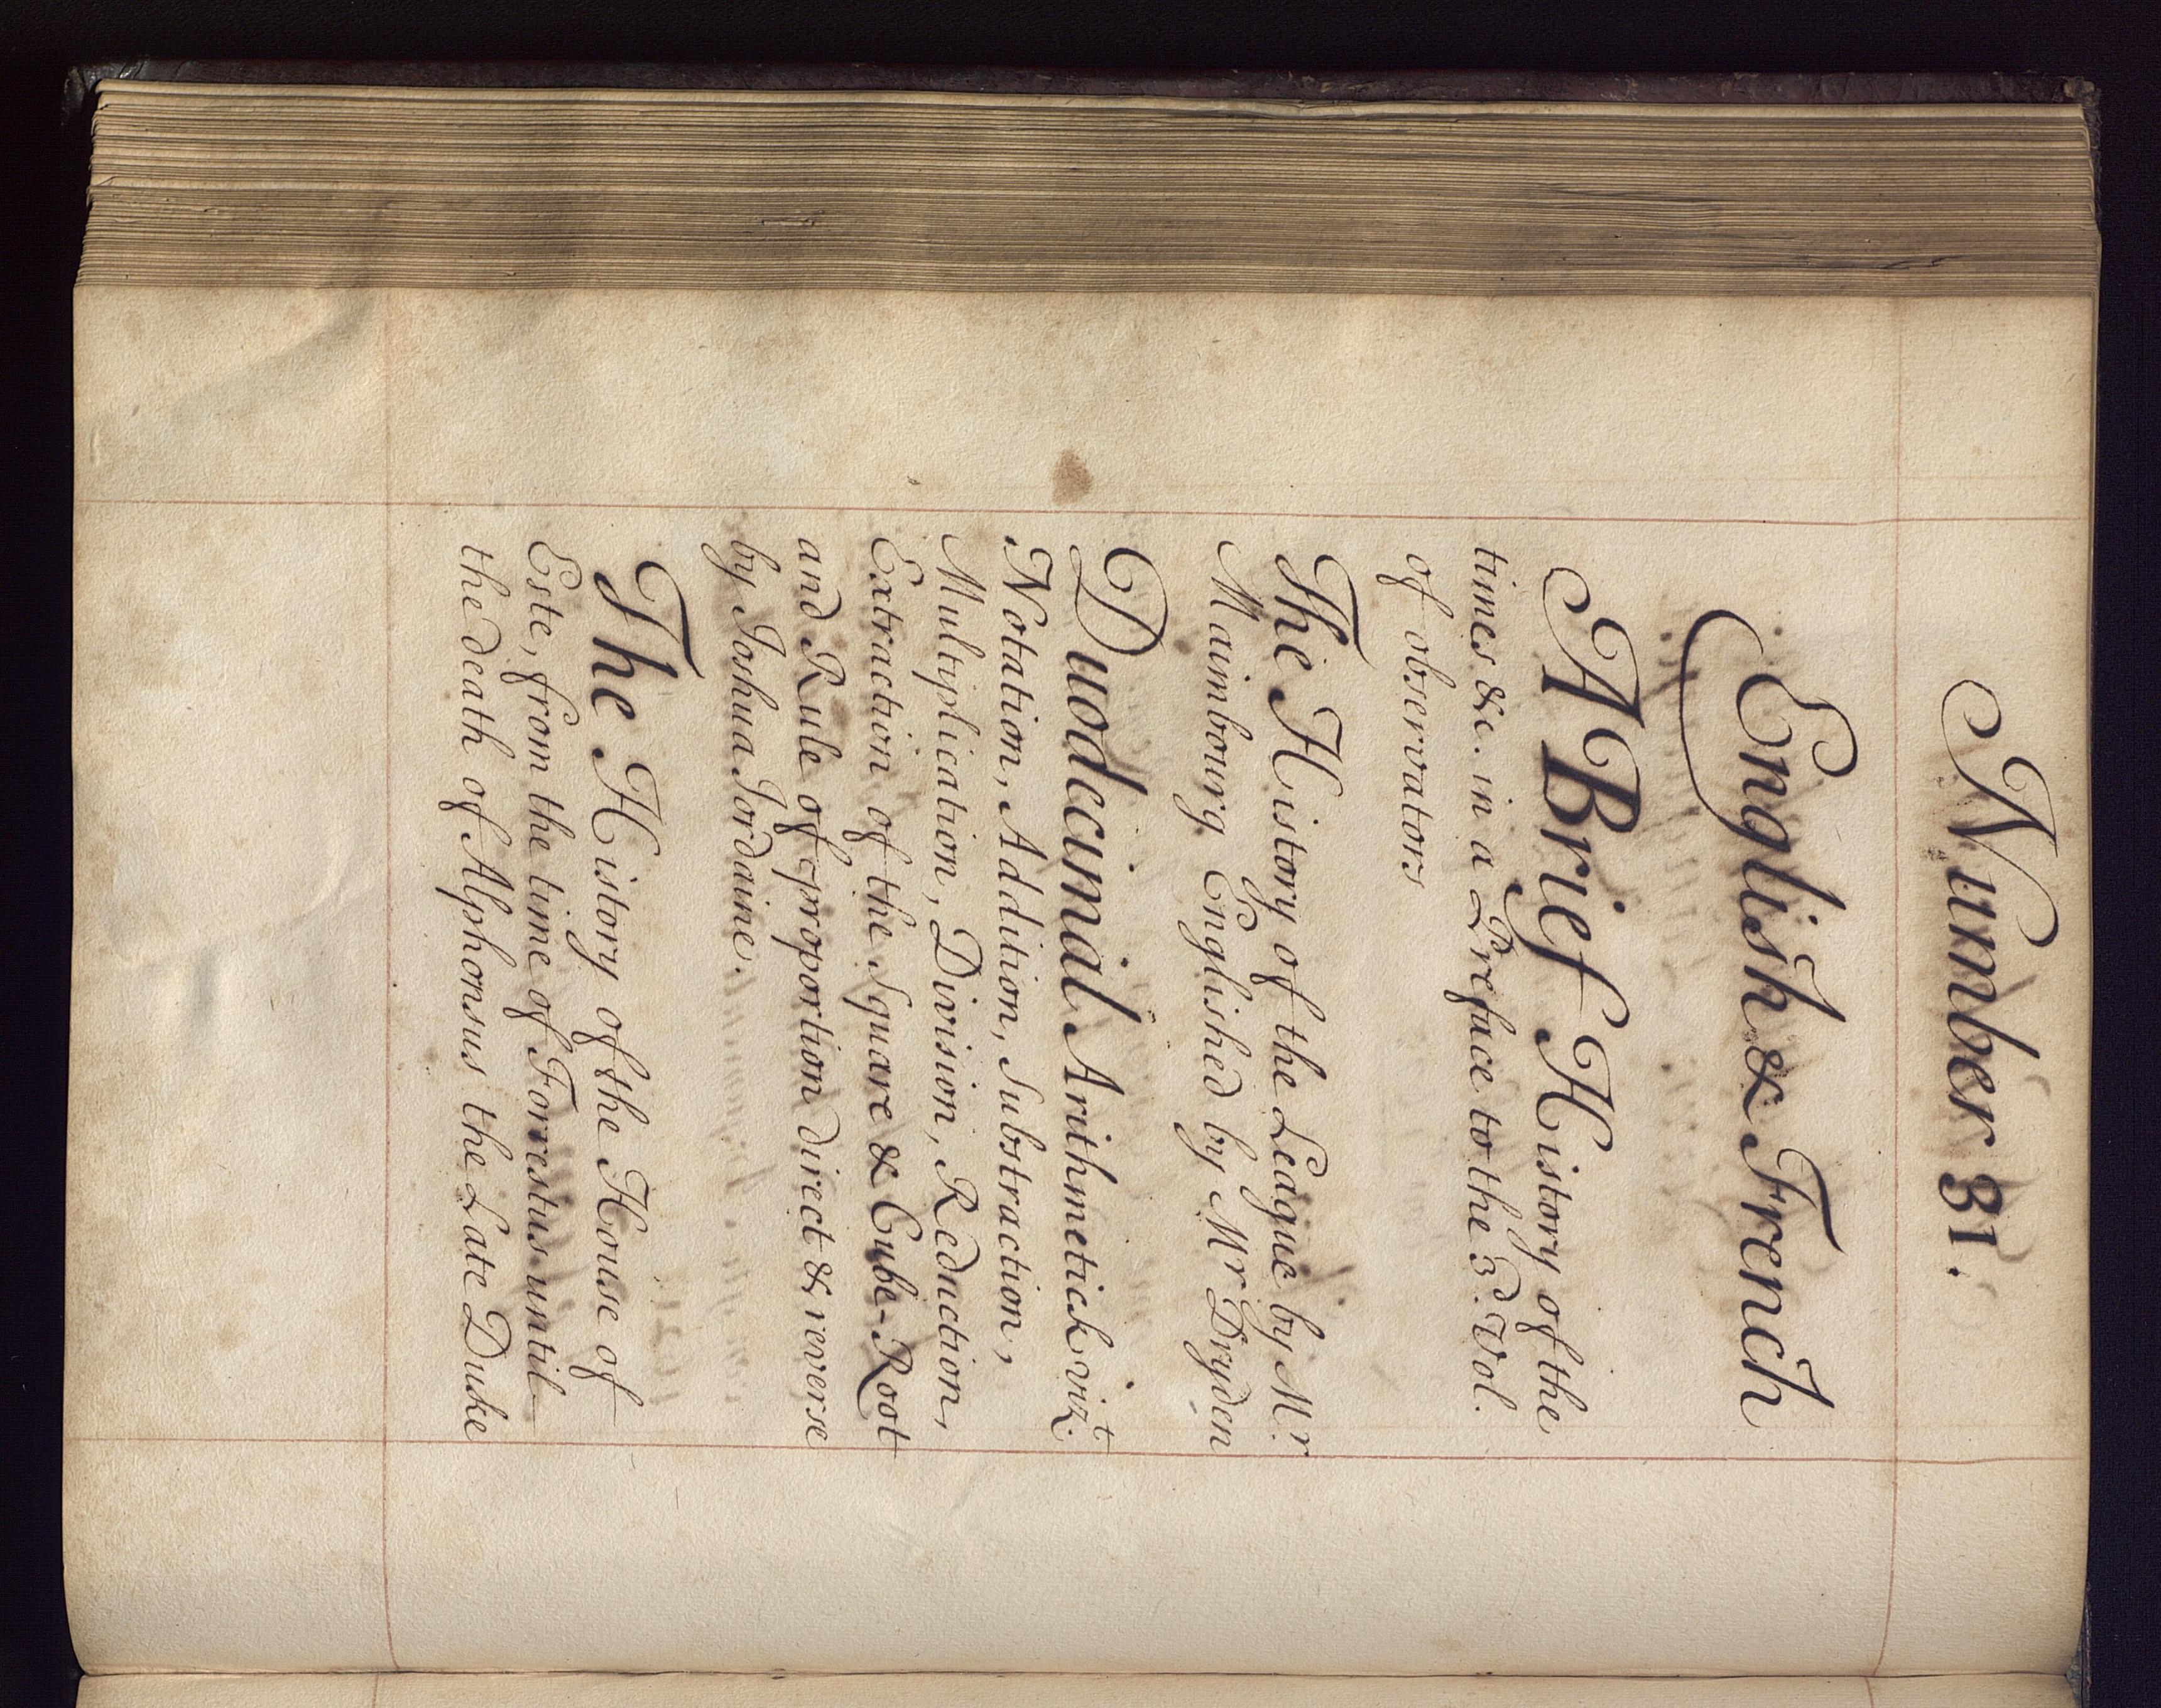 Number 31.
English & French
A Brief History of the
times &c. in a Preface to the 3.d Vol.
of observators
The History of the League by M.r
Maimbourg Englished by Mr. Dryden
Duodecimal Arithmetick viz.t
Notation, Addition, Substraction,
Multyplication, Division, Reduction,
Extraction of the Square & Cube-Root
and Rule of proportion direct & reverse
by Joshua Jordaine.
The History of the House of
Este, from the time of Forrestus until
the death of Alphonsus the Late Duke